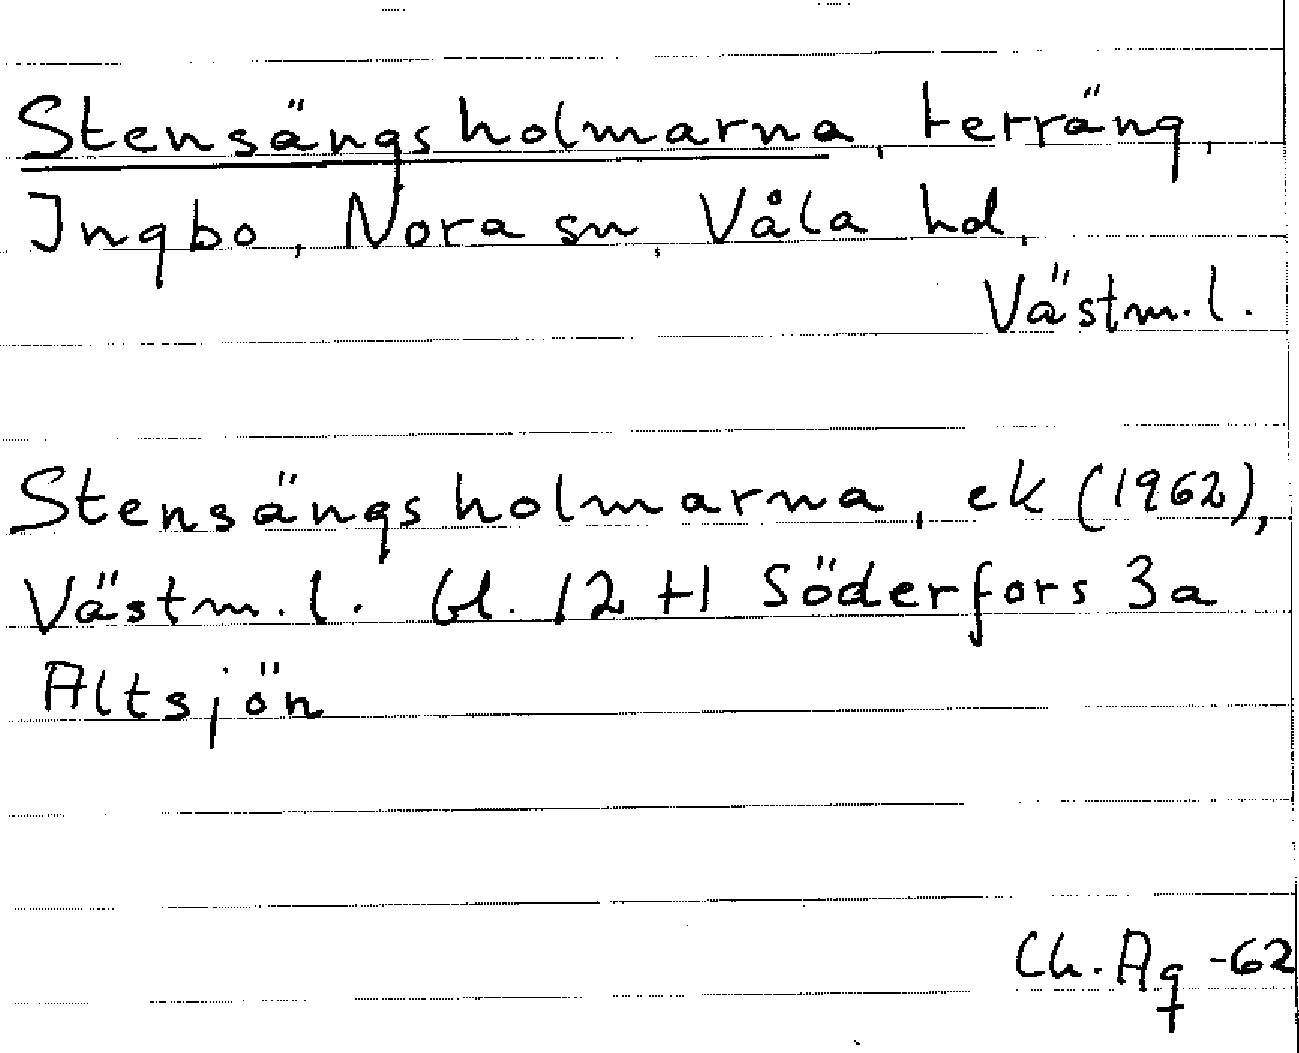 Stensängsholmarna, terräng,
Ingbo, Nora sn, Våla hd,
Västm.l.
Stensängsholmarna, ek (1962),
Västm.l. bl. 12 H Söderfors 3a
Altsjön
Ch. Ag -62